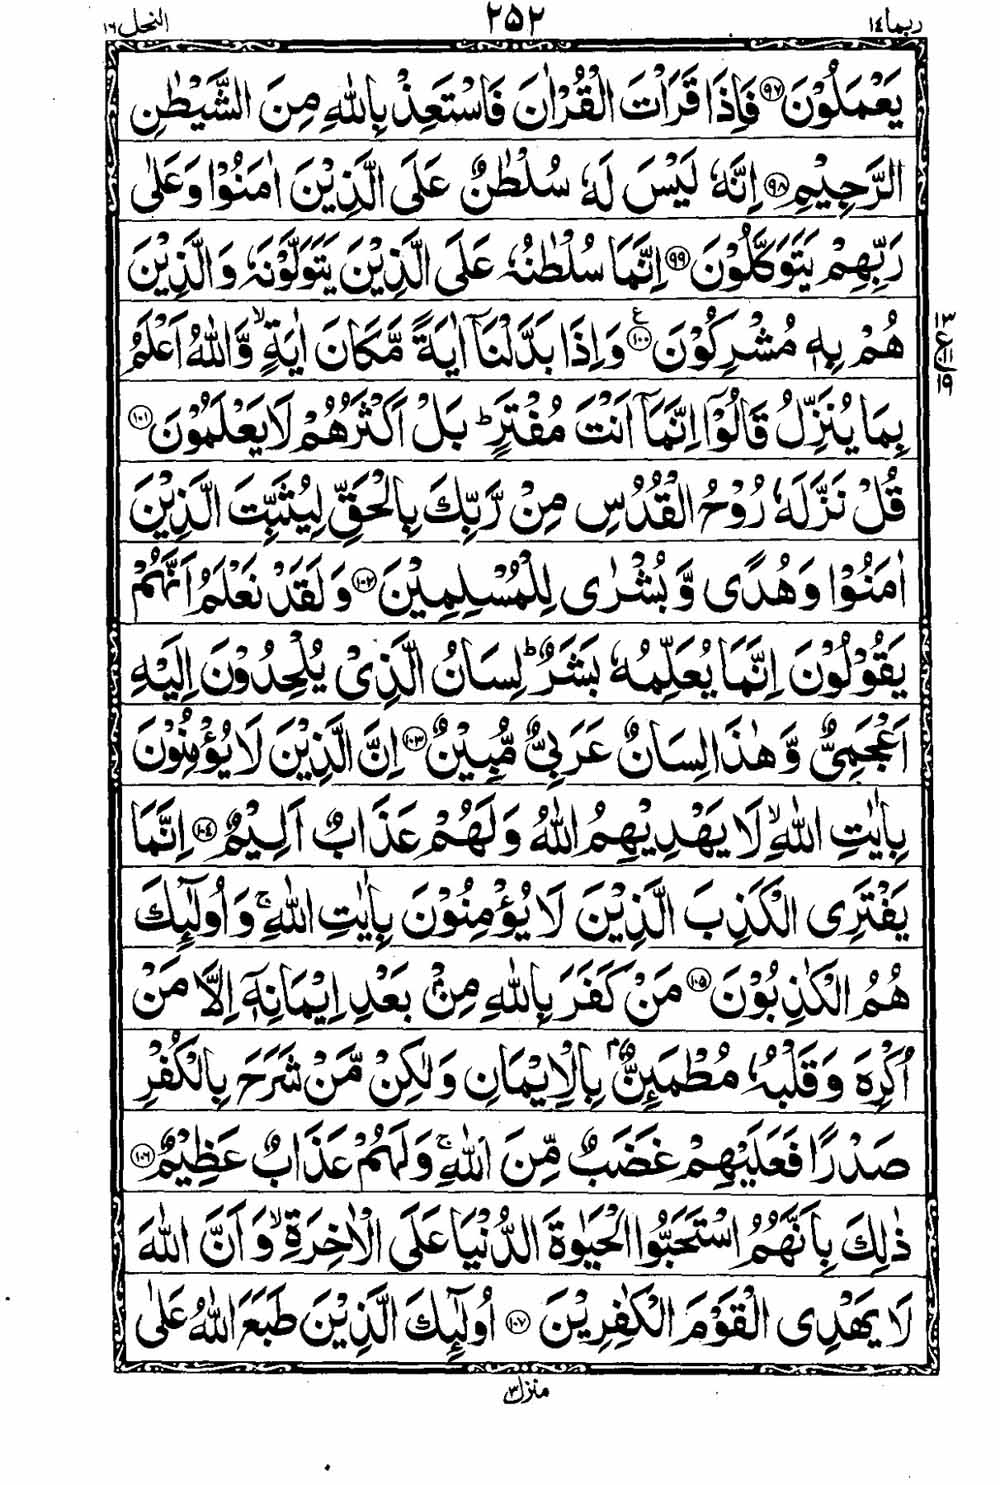 ربما ١٤ ٢٥٢ النحل ١٦
يَعۡمَلُوۡنَ ﴿۹۷﴾ فَاِذَا قَرَاۡتَ الۡقُرۡاٰنَ فَاسۡتَعِذۡ بِاللّٰهِ مِنَ الشَّيۡطٰنِ
الرَّجِيۡمِ ﴿۹۸﴾ اِنَّهٗ لَيۡسَ لَهٗ سُلۡطٰنٌ عَلَى الَّذِيۡنَ اٰمَنُوۡا وَعَلٰى
رَبِّهِمۡ يَتَوَكَّلُوۡنَ ﴿۹۹﴾ اِنَّمَا سُلۡطٰنُهٗ عَلَى الَّذِيۡنَ يَتَوَلَّوۡنَهٗ وَالَّذِيۡنَ
هُمۡ بِهٖ مُشۡرِكُوۡنَ ﴿۱۰۰﴾ ع وَاِذَا بَدَّلۡنَاۤ اٰيَةً مَّكَانَ اٰيَةٍۙ وَّاللّٰهُ اَعۡلَمُ
١٣ ع ١١ ١٩
بِمَا يُنَزِّلُ قَالُوۡۤا اِنَّمَاۤ اَنۡتَ مُفۡتَرٍؕ بَلۡ اَكۡثَرُهُمۡ لَا يَعۡلَمُوۡنَ ﴿۱۰۱﴾
قُلۡ نَزَّلَهٗ رُوۡحُ الۡقُدُسِ مِنۡ رَّبِّكَ بِالۡحَقِّ لِيُثَبِّتَ الَّذِيۡنَ
اٰمَنُوۡا وَهُدًى وَّبُشۡرٰى لِلۡمُسۡلِمِيۡنَ ﴿۱۰۲﴾ وَلَقَدۡ نَعۡلَمُ اَنَّهُمۡ
يَقُوۡلُوۡنَ اِنَّمَا يُعَلِّمُهٗ بَشَرٌؕ لِسَانُ الَّذِىۡ يُلۡحِدُوۡنَ اِلَيۡهِ
اَعۡجَمِىٌّ وَّهٰذَا لِسَانٌ عَرَبِىٌّ مُّبِيۡنٌ ﴿۱۰۳﴾ اِنَّ الَّذِيۡنَ لَا يُؤۡمِنُوۡنَ
بِاٰيٰتِ اللّٰهِۙ لَا يَهۡدِيۡهِمُ اللّٰهُ وَلَهُمۡ عَذَابٌ اَلِيۡمٌ ﴿۱۰۴﴾ اِنَّمَا
يَفۡتَرِى الۡكَذِبَ الَّذِيۡنَ لَا يُؤۡمِنُوۡنَ بِاٰيٰتِ اللّٰهِۚ وَاُولٰۤٮِٕكَ
هُمُ الۡكٰذِبُوۡنَ ﴿۱۰۵﴾ مَنۡ كَفَرَ بِاللّٰهِ مِنۡۢ بَعۡدِ اِيۡمَانِهٖۤ اِلَّا مَنۡ
اُكۡرِهَ وَقَلۡبُهٗ مُطۡمَٮِٕنٌّۢ بِالۡاِيۡمَانِ وَلٰكِنۡ مَّنۡ شَرَحَ بِالۡكُفۡرِ
صَدۡرًا فَعَلَيۡهِمۡ غَضَبٌ مِّنَ اللّٰهِۚ وَلَهُمۡ عَذَابٌ عَظِيۡمٌ ﴿۱۰۶﴾
ذٰلِكَ بِاَنَّهُمُ اسۡتَحَبُّوا الۡحَيٰوةَ الدُّنۡيَا عَلَى الۡاٰخِرَةِۙ وَاَنَّ اللّٰهَ
لَا يَهۡدِى الۡقَوۡمَ الۡكٰفِرِيۡنَ ﴿۱۰۷﴾ اُولٰۤٮِٕكَ الَّذِيۡنَ طَبَعَ اللّٰهُ عَلٰى
منزل ٣